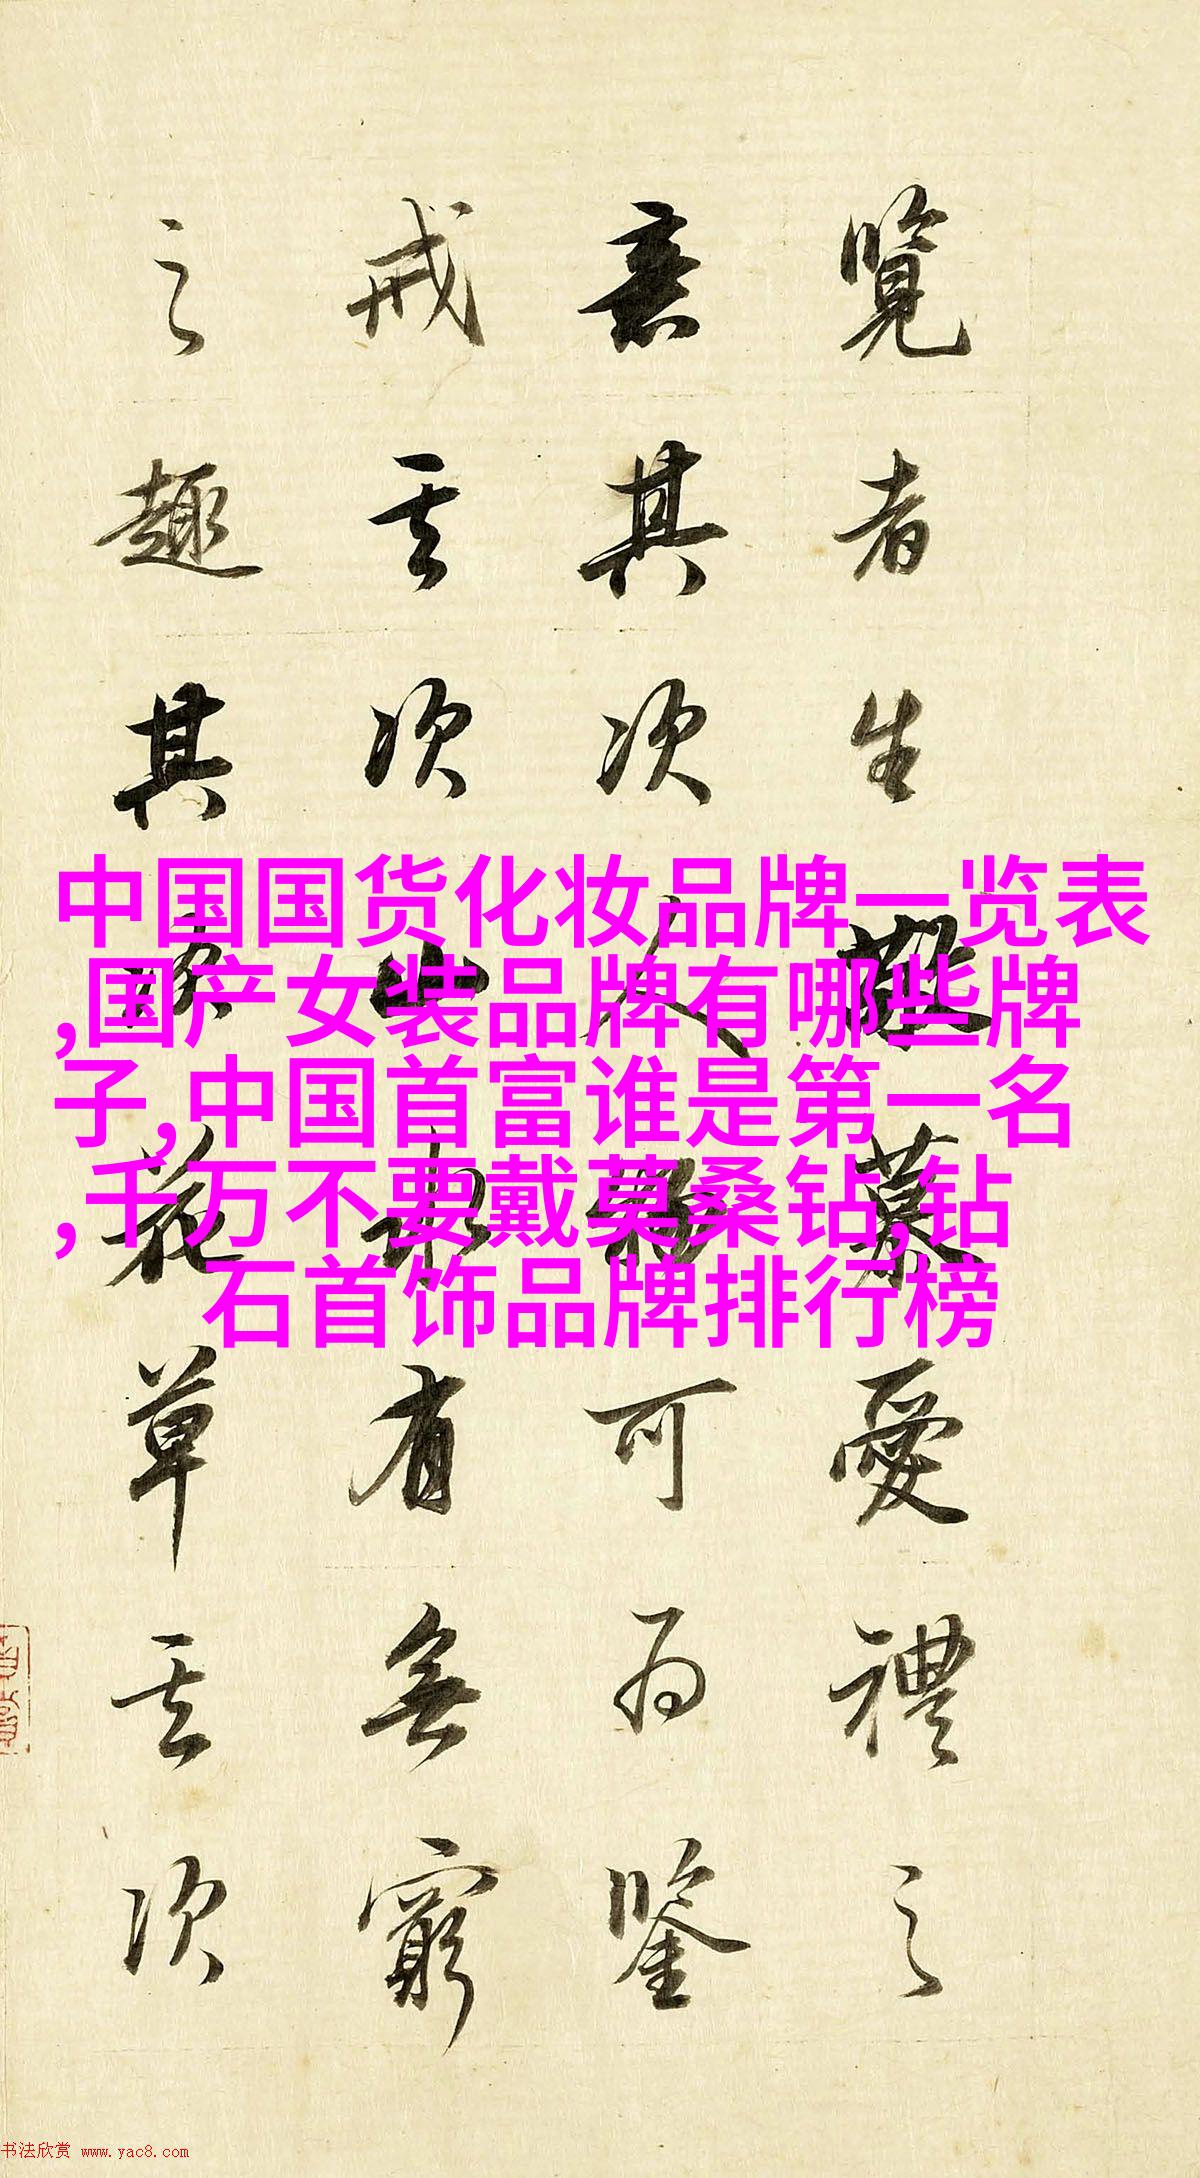 覽者生慕愛禮之
意其次人可為鑒
戒其次山水有無窮
之趣其次花草其次
中国国货化妆品牌一览表
,国产女装品牌有哪些牌
子,中国首富谁是第一名
,千万不要戴莫桑钻,钻
石首饰品牌排行榜
书法欣赏 www.yac8.com